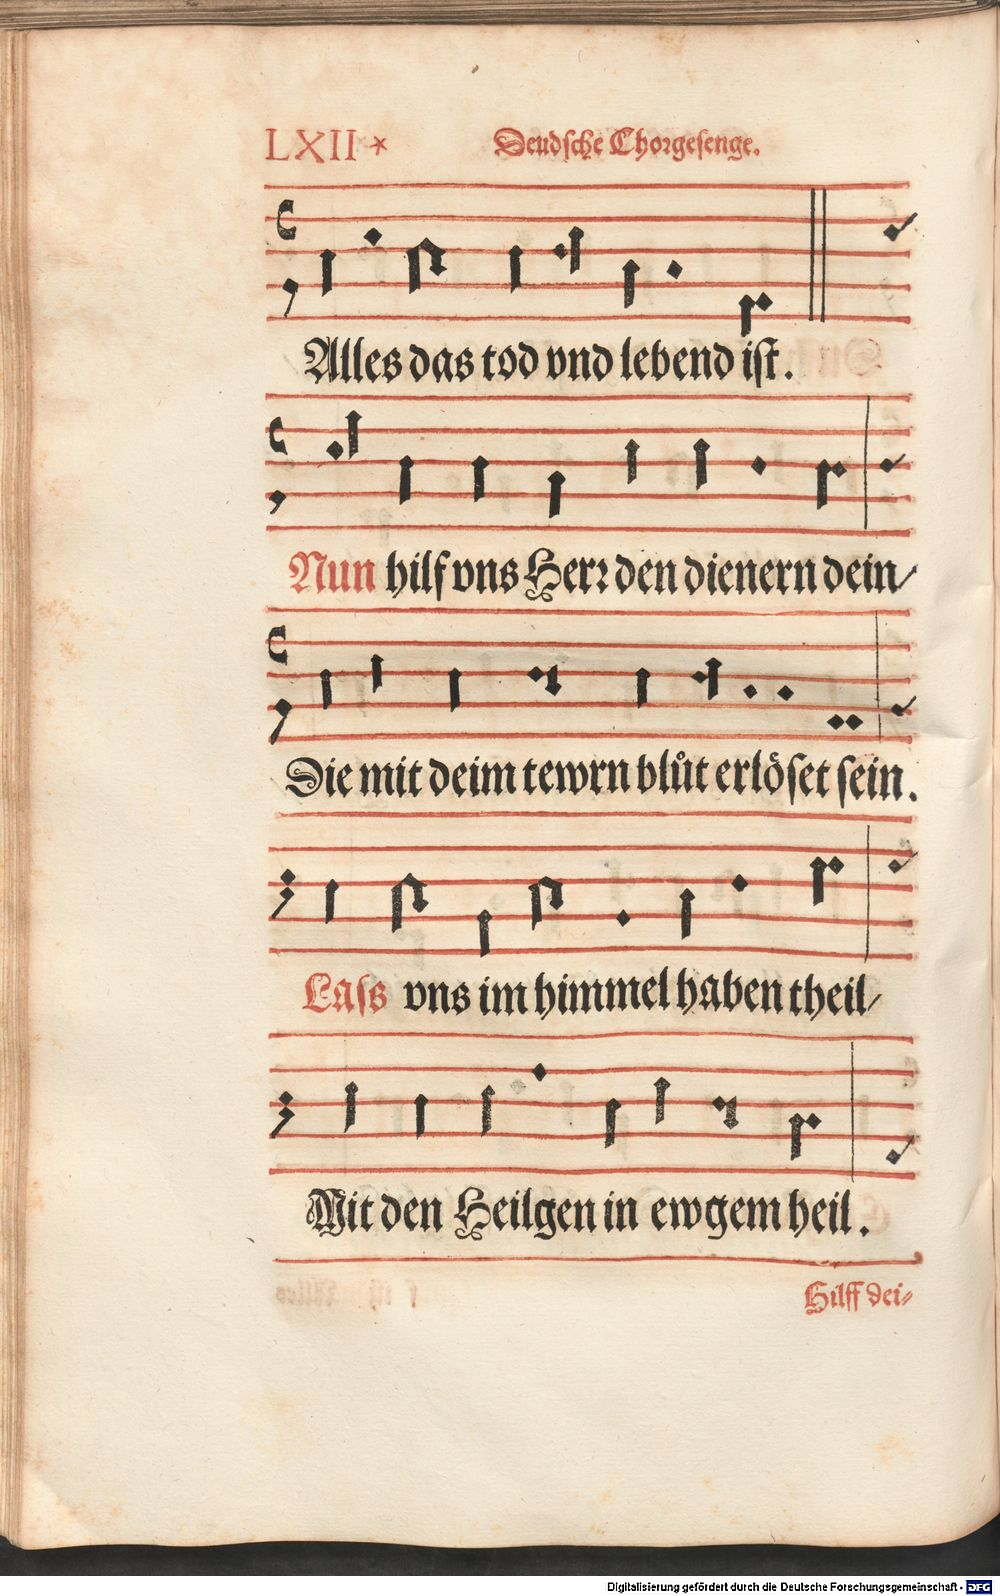 LXII * Deudsche Chorgesenge.
Alles das tod vnd lebend ist.
Nun hilf vns Herr den dienern dein/
Die mit deim tewrn blůt erlöset sein.
Lass vns im himmel haben theil/
Mit den Heilgen in ewgem heil.
Hilff dei-
Digitalisierung gefördert durch die Deutsche Forschungsgemeinschaft - DFG